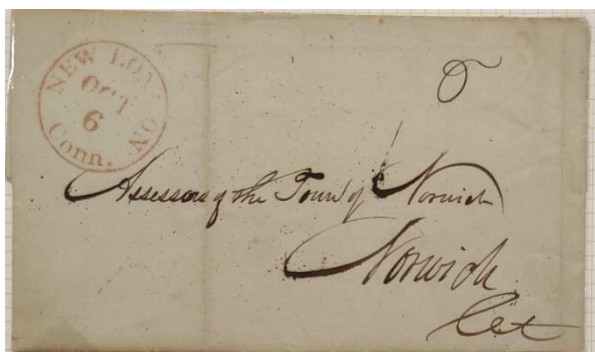 NEW LONDON
OCT
6
Conn.
6
Assessors of the Town of Norwich
Norwich
Cct